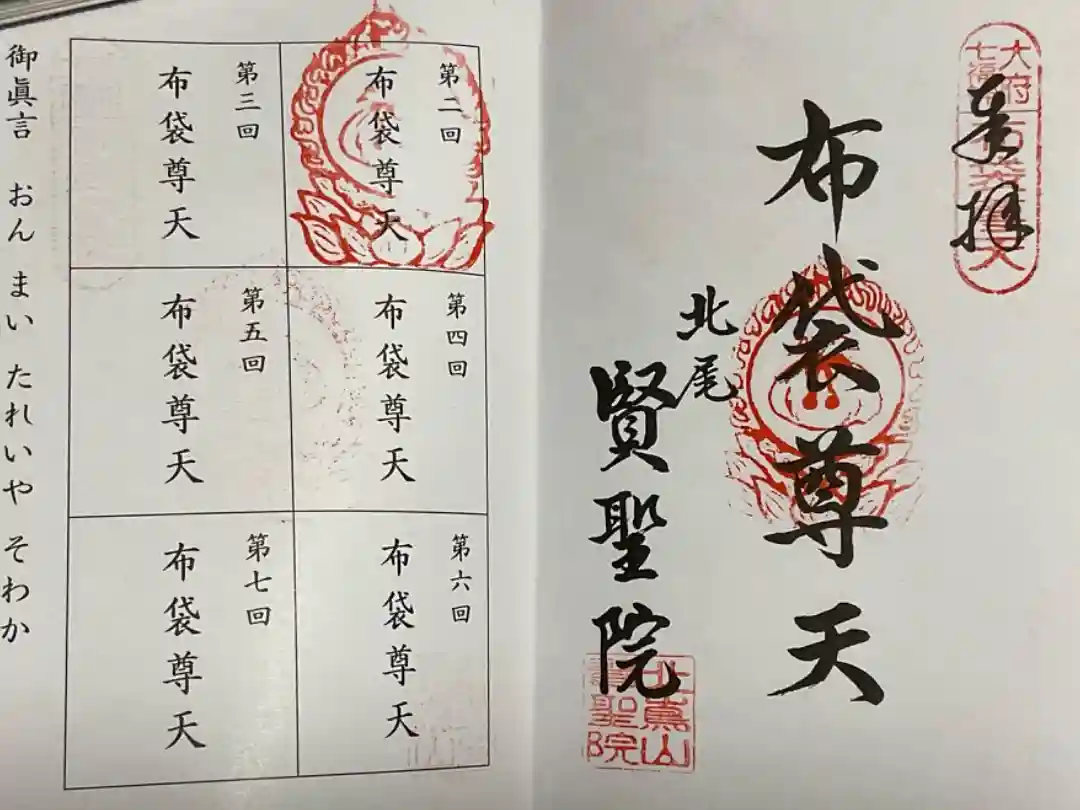 奉拝
大府
七福
布袋尊天
布袋尊天
北尾
賢聖院
北嵩山
賢聖院
第二回
布袋尊天
第三回
布袋尊天
第四回
布袋尊天
第五回
布袋尊天
第六回
布袋尊天
第七回
布袋尊天
御眞言 おん まい たれいや そわか